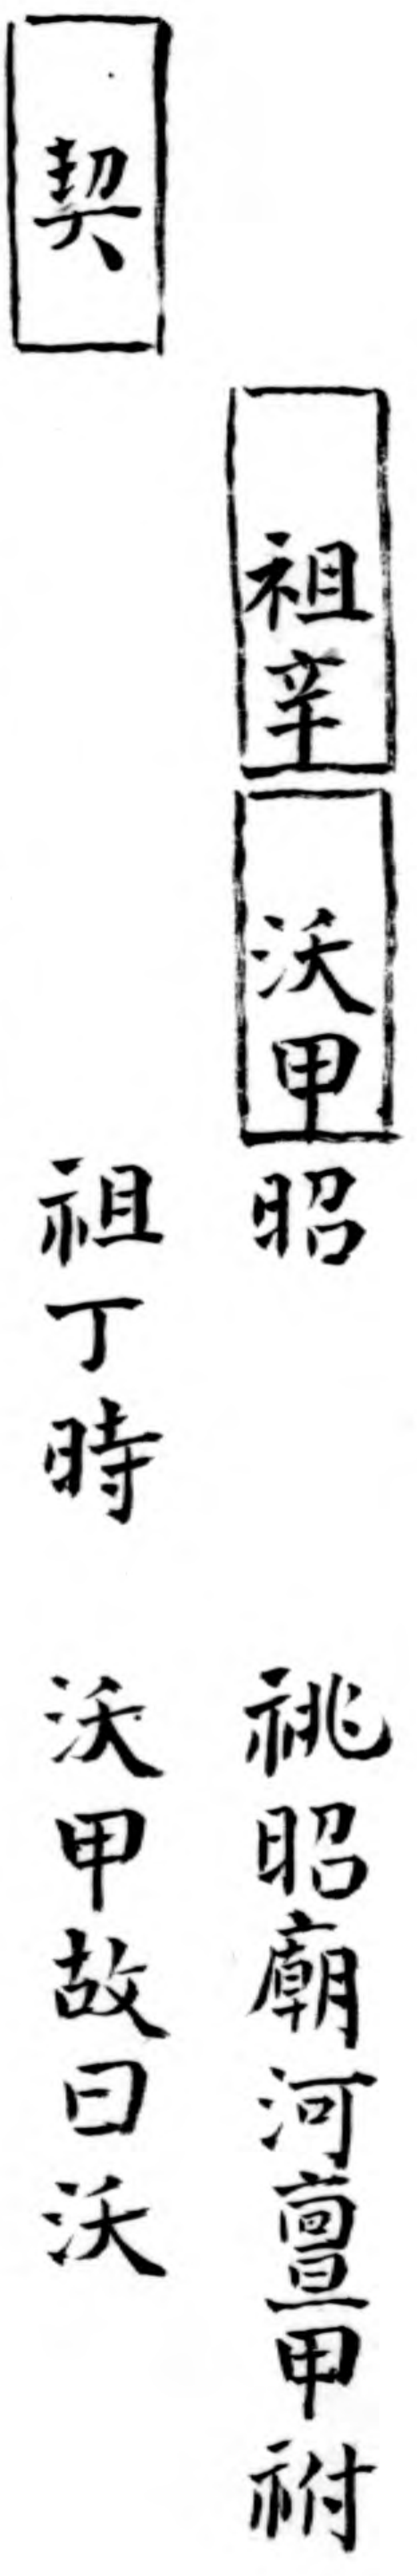 祖辛 沃甲 昭 祧昭廟河亶甲祔
契 祖丁時 沃甲故曰沃